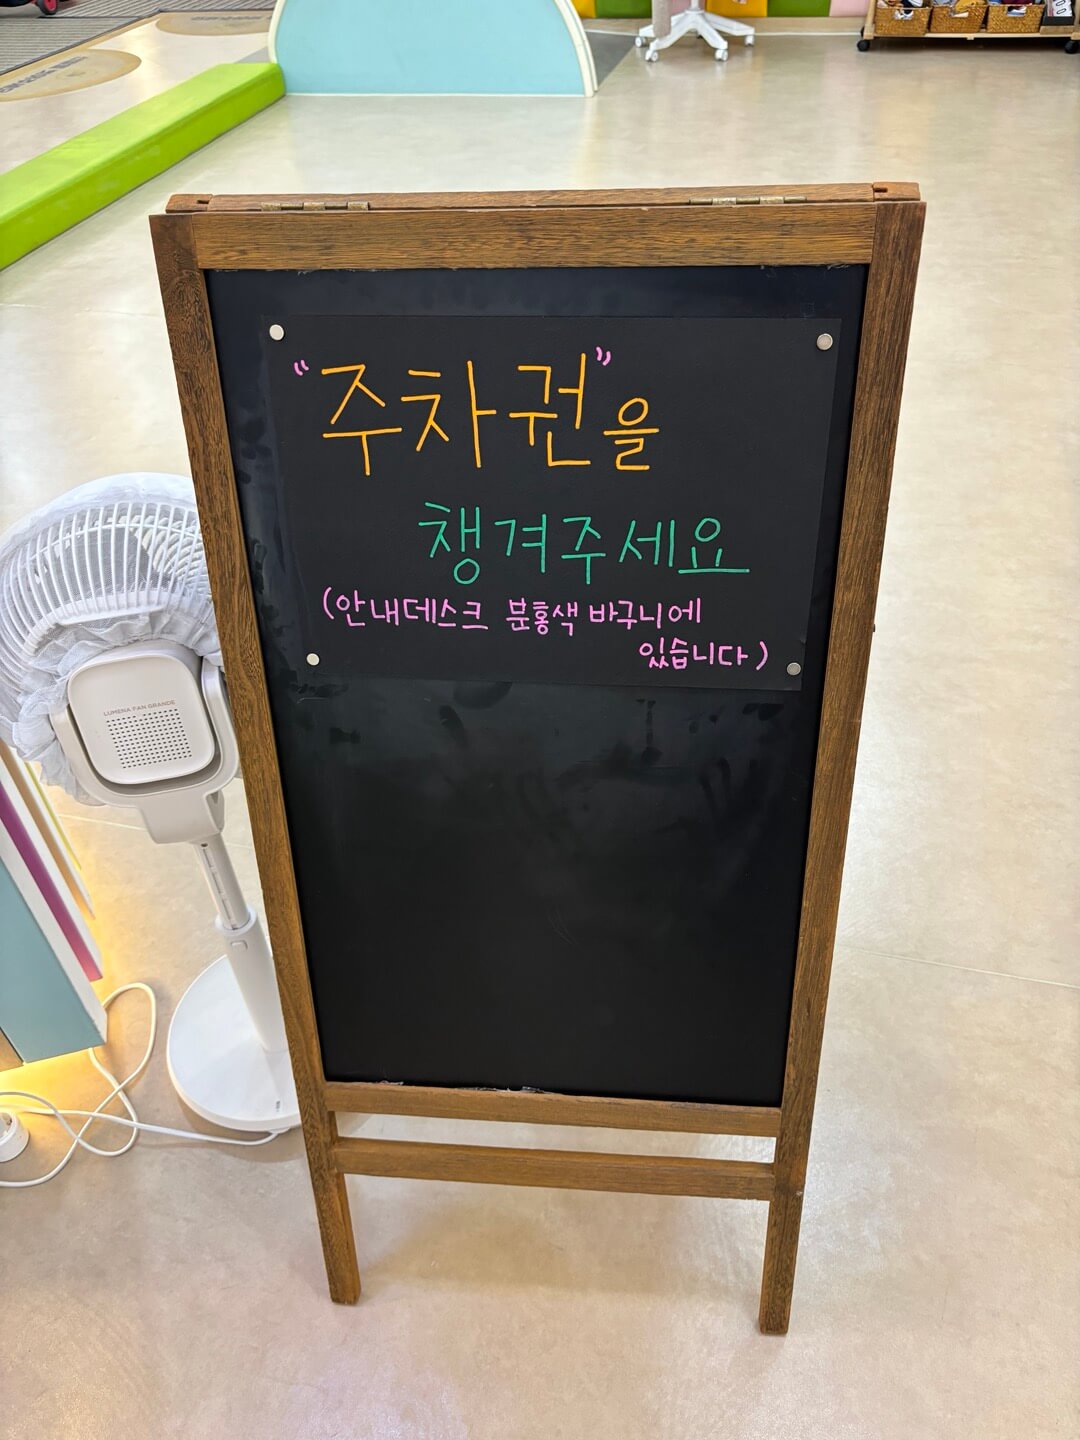 "주차권"을
챙겨주세요
(안내데스크 분홍색 바구니에
있습니다)
LUMENA FAN GRANDE